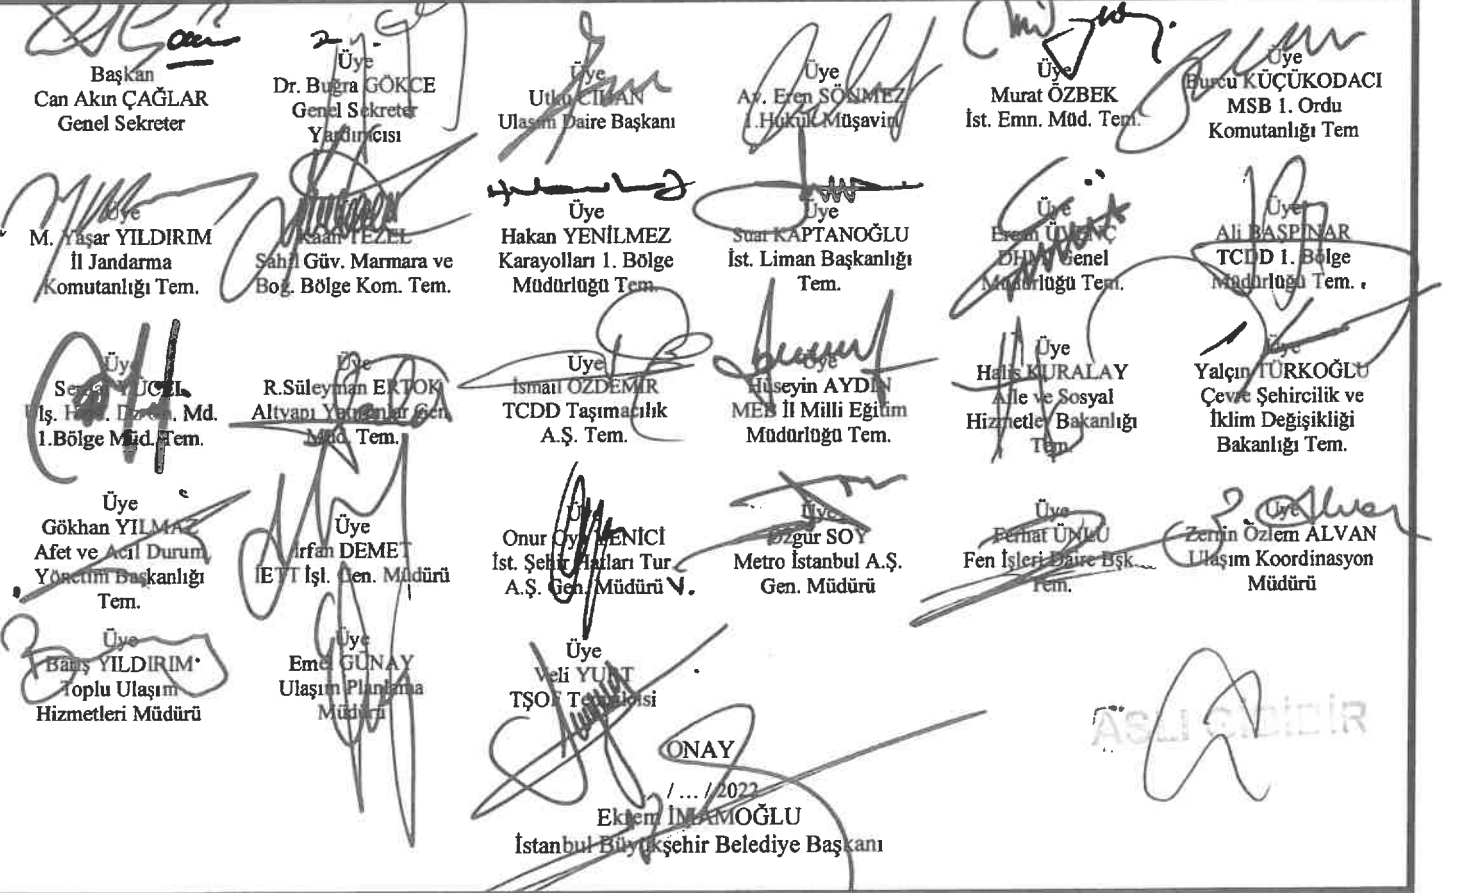 Başkan
Can Akın ÇAĞLAR
Genel Sekreter
Üye
Dr. Buğra GÖKCE
Genel Sekreter
Yardımcısı
Üye
Utku CİHAN
Ulaşım Daire Başkanı
Üye
Av. Eren SÖNMEZ
1.Hukuk Müşaviri
Üye
Murat ÖZBEK
İst. Emn. Müd. Tem.
Üye
Burcu KÜÇÜKODACI
MSB 1. Ordu
Komutanlığı Tem
Üye
M. Yaşar YILDIRIM
İl Jandarma
Komutanlığı Tem.
Kaan TEZEL
Sahil Güv. Marmara ve
Boğ. Bölge Kom. Tem.
Üye
Hakan YENİLMEZ
Karayolları 1. Bölge
Müdürlüğü Tem.
Üye
Suat KAPTANOĞLU
İst. Liman Başkanlığı
Tem.
Üye
DHMİ Genel
Müdürlüğü Tem.
Üye
Ali BAŞPINAR
TCDD 1. Bölge
Müdürlüğü Tem.
Üye
YÜCEL
Md.
1.Bölge Müd. Tem.
Üye
R.Süleyman ERTOK
Altyapı Yatırımlar Gen.
Müd. Tem.
Üye
İsmail ÖZDEMİR
TCDD Taşımacılık
A.Ş. Tem.
Üye
Hüseyin AYDIN
MEB İl Milli Eğitim
Müdürlüğü Tem.
Üye
Halis KURALAY
Aile ve Sosyal
Hizmetler Bakanlığı
Tem.
Üye
Yalçın TÜRKOĞLU
Çevre Şehircilik ve
İklim Değişikliği
Bakanlığı Tem.
Üye
Gökhan YILMAZ
Afet ve Acil Durum
Yönetim Başkanlığı
Tem.
Üye
İrfan DEMET
İETT İşl. Gen. Müdürü
Üye
Onur YENİCİ
İst. Şehir Hatları Tur
A.Ş. Gen. Müdürü V.
Üye
Özgür SOY
Metro İstanbul A.Ş.
Gen. Müdürü
Üye
Ferhat ÜNLÜ
Fen İşleri Daire Bşk.
Tem.
Üye
Zerrin Özlem ALVAN
Ulaşım Koordinasyon
Müdürü
Üye
Barış YILDIRIM
Toplu Ulaşım
Hizmetleri Müdürü
Üye
Emel GÜNAY
Ulaşım Planlama
Müdürü
Üye
Veli YURT
TŞOF Temsilcisi
ASLI GİBİDİR
ONAY
/ ... / 2022
Ekrem İMAMOĞLU
İstanbul Büyükşehir Belediye Başkanı